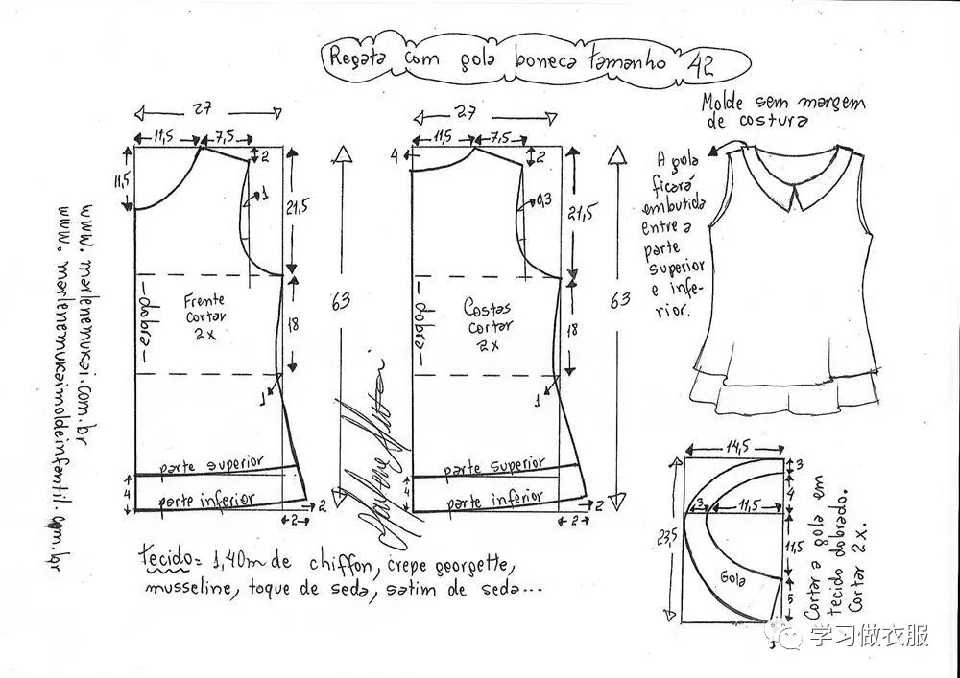 Regata com gola boneca tamanho 42
Molde sem margem
de costura
A gola
ficará
embutida
entre a
parte
superior
e infe-
rior.
27
11,5
7,5
2
11,5
1
21,5
18
63
Frente
cortar
2x
-dobra-
1
parte superior
parte inferior
4
2
2
27
11,5
7,5
4
2
0,3
21,5
18
63
Costas
cortar
2x
-dobra-
1
parte superior
parte inferior
4
2
2
14,5
3
4
3
11,5
23,5
11,5
Gola
5
Cortar a gola em
tecido dobrado.
Cortar 2x.
www.marlenemukai.com.br
www.marlenemukaimoldeinfantil.com.br
Tecido= 1,40m de chiffon, crepe georgette,
musseline, toque de seda, satim de seda...
学习做衣服